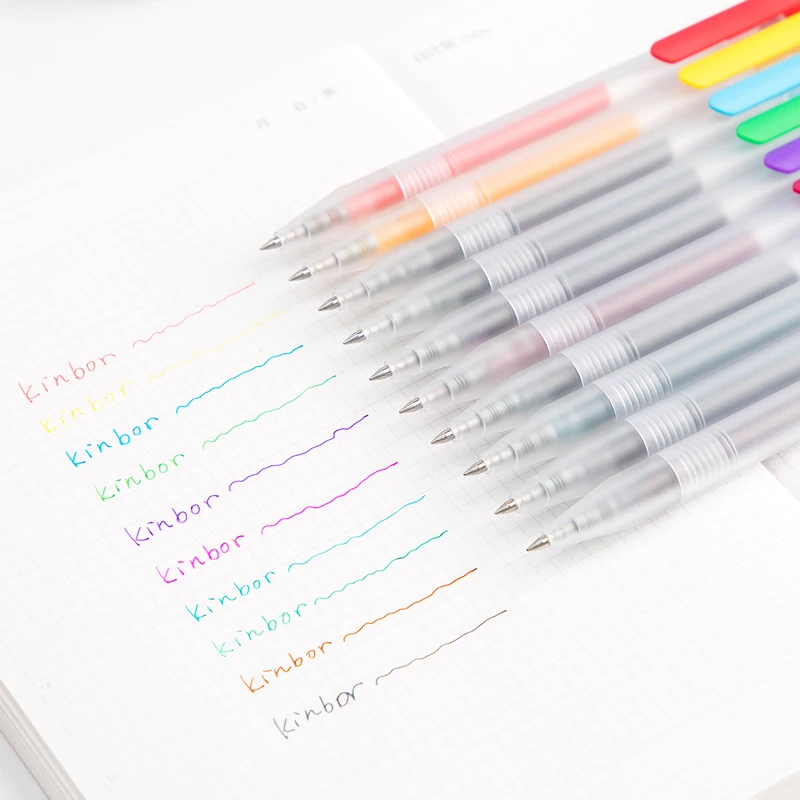 kinbor
kinbor
kinbor
kinbor
kinbor
kinbor
kinbor
kinbor
kinbor
kinbor